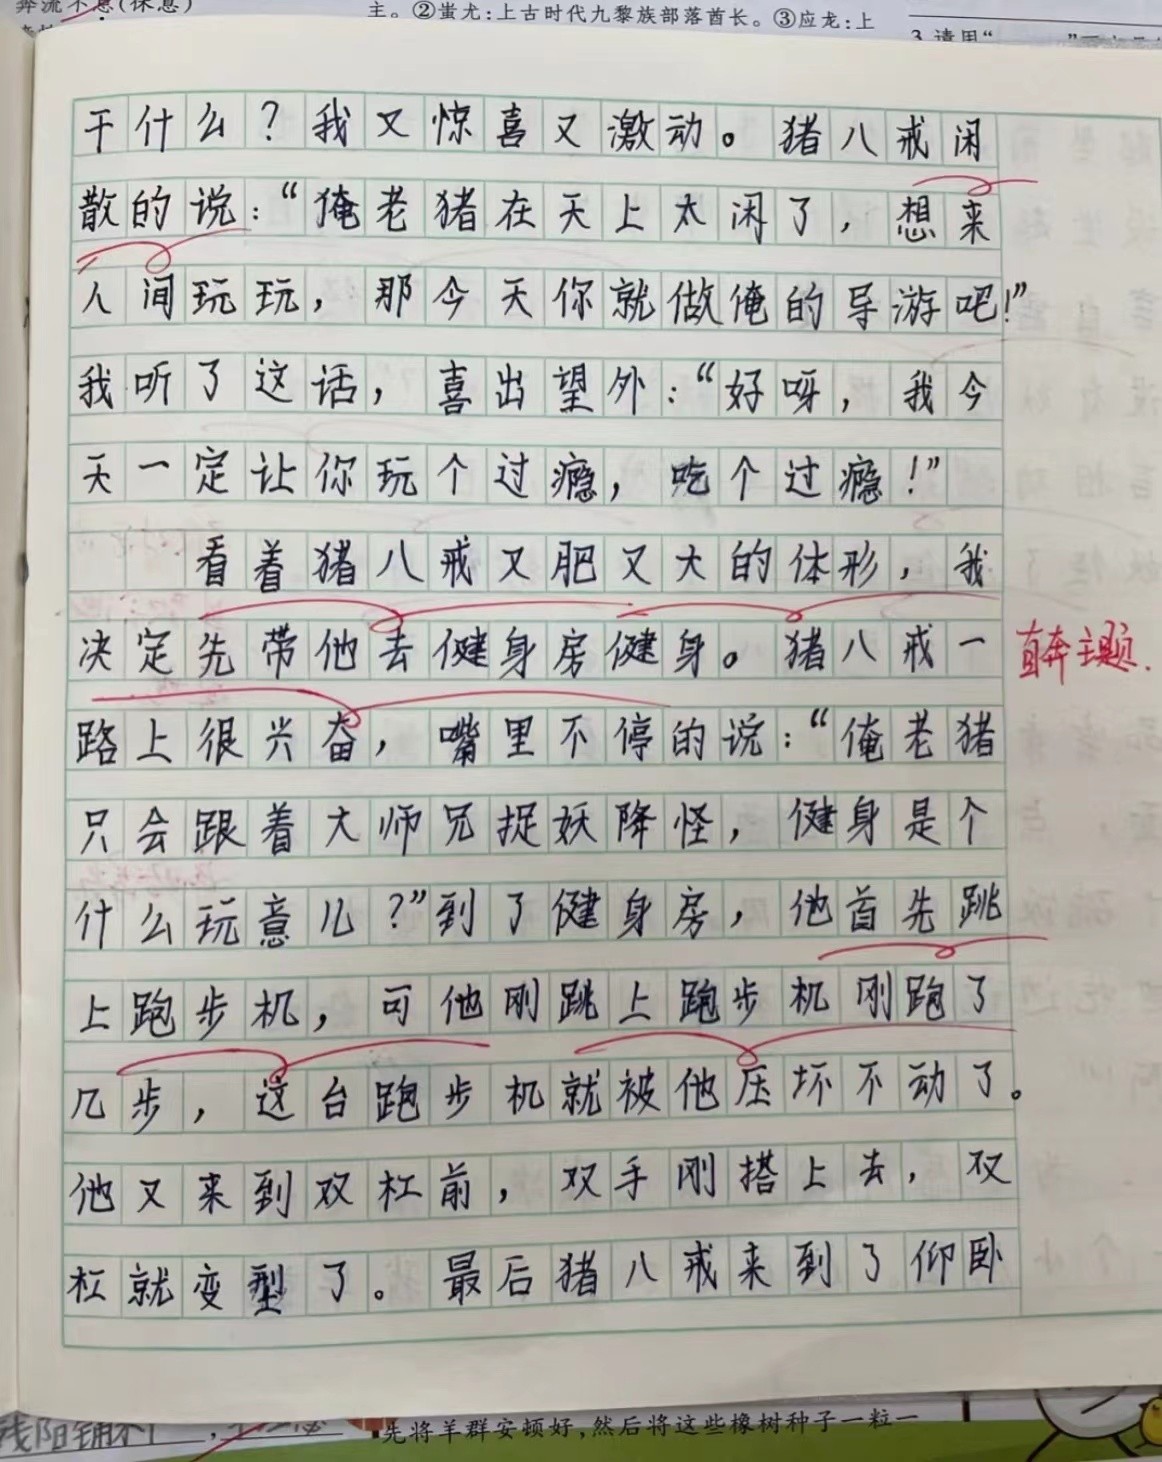 奔流不息(休息)
主。②蚩尤:上古时代九黎族部落酋长。③应龙:上
3.请用“
干什么?我又惊喜又激动。猪八戒闲
散的说:“俺老猪在天上太闲了,想来
人间玩玩,那今天你就做俺的导游吧!”
我听了这话,喜出望外:“好呀,我今
天一定让你玩个过瘾,吃个过瘾!”
看着猪八戒又肥又大的体形,我
决定先带他去健身房健身。猪八戒一
直奔主题.
路上很兴奋,嘴里不停的说:“俺老猪
只会跟着大师兄捉妖降怪,健身是个
什么玩意儿?”到了健身房,他首先跳
上跑步机,可他刚跳上跑步机刚跑了
几步,这台跑步机就被他压坏不动了。
他又来到双杠前,双手刚搭上去,双
杠就变型了。最后猪八戒来到了仰卧
残阳铺
先将羊群安顿好,然后将这些橡树种子一粒一